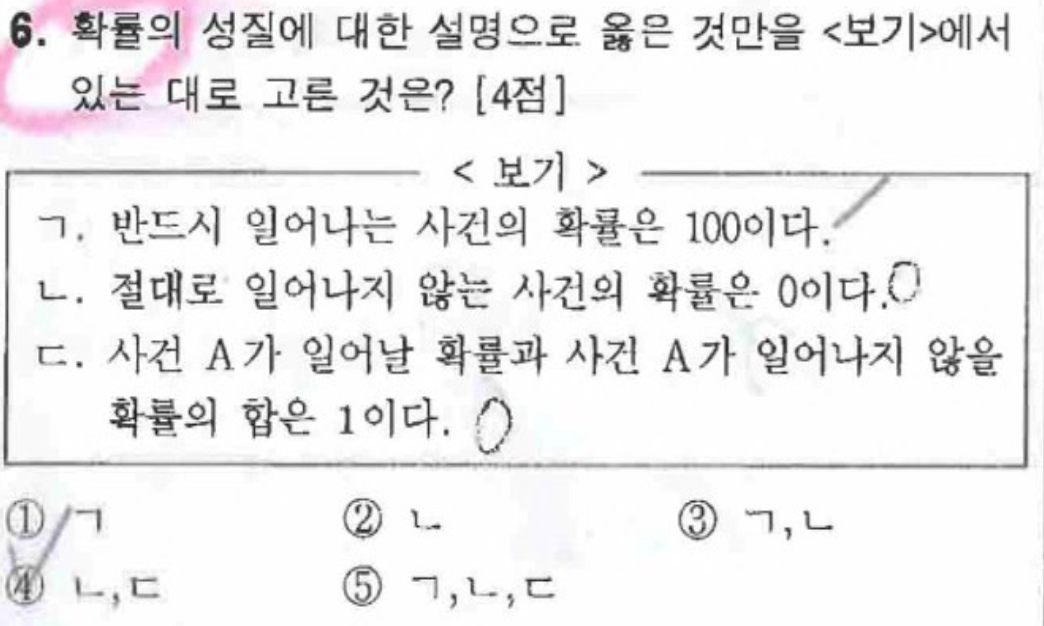 6. 확률의 성질에 대한 설명으로 옳은 것만을 <보기>에서
있는 대로 고른 것은? [4점]
< 보기 >
ㄱ. 반드시 일어나는 사건의 확률은 100이다.
ㄴ. 절대로 일어나지 않는 사건의 확률은 0이다.
ㄷ. 사건 A가 일어날 확률과 사건 A가 일어나지 않을
확률의 합은 1이다.
① ㄱ ② ㄴ ③ ㄱ,ㄴ
④ ㄴ,ㄷ ⑤ ㄱ,ㄴ,ㄷ